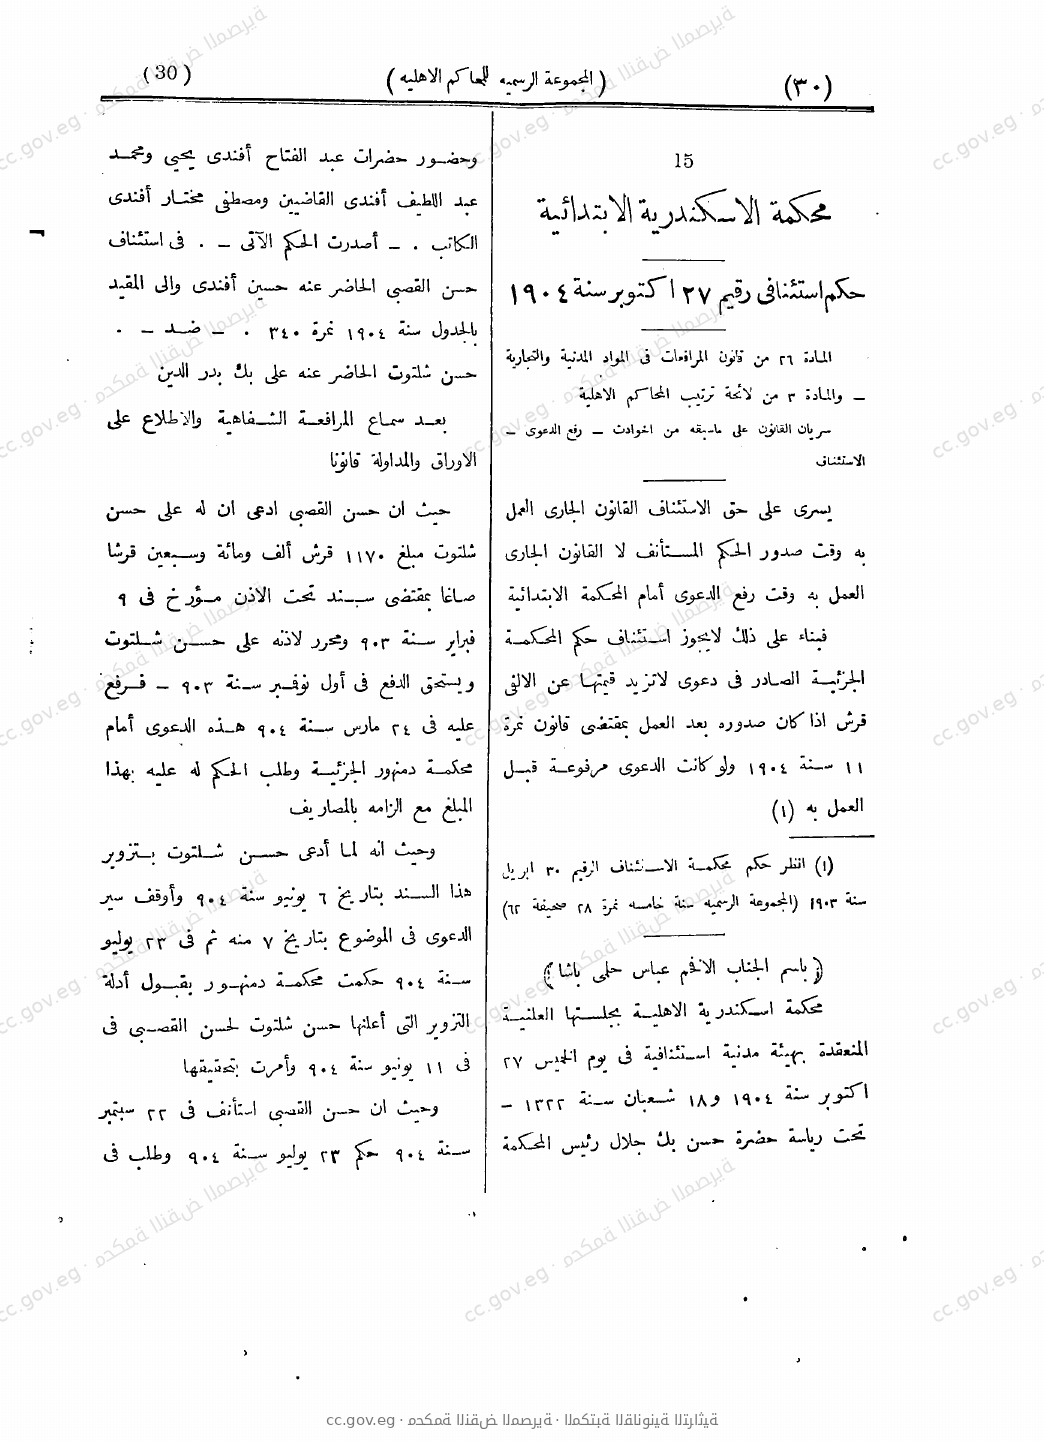 (٣٠)
(المجموعة الرسميه للمحاكم الاهليه)
(30)
15
محكمة الاسكندرية الابتدائية
حكم استئنافى رقيم ٢٧ اكتوبر سنة ١٩٠٤
المادة ٢٦ من قانون المرافعات فى المواد المدنية والتجارية
ــ والمادة ٣ من لائحة ترتيب المحاكم الاهلية
سريان القانون على ماسبقه من الحوادث ــ رفع الدعوى ــ
الاستئناف
يسرى على حق الاستئناف القانون الجارى العمل
به وقت صدور الحكم المستأنف لا القانون الجارى
العمل به وقت رفع الدعوى أمام المحكمة الابتدائية
فبناء على ذلك لايجوز استئناف حكم المحكمة
الجزئية الصادر فى دعوى لاتزيد قيمتها عن الالفى
قرش اذا كان صدوره بعد العمل بمقتضى قانون نمرة
١١ سنة ١٩٠٤ ولو كانت الدعوى مرفوعة قبل
العمل به (١)
(١) انظر حكم محكمة الاستئناف الرقيم ٣٠ ابريل
سنة ١٩٠٣ (المجموعة الرسميه سنة خامسه نمرة ٢٨ صحيفة ٦٢)
(باسم الجناب الافخم عباس حلمى باشا)
محكمة اسكندرية الاهلية بجلستها العلنية
المنعقدة بهيئة مدنية استئنافية فى يوم الخميس ٢٧
اكتوبر سنة ١٩٠٤ و١٨ شعبان سنة ١٣٢٢ ــ
تحت رياسة حضرة حسن بك جلال رئيس المحكمة
وحضور حضرات عبد الفتاح أفندى يحيى ومحمد
عبد اللطيف أفندى القاضيين ومصطفى مختار أفندى
الكاتب . ــ أصدرت الحكم الآتى ــ . فى استئناف
حسن القصبى الحاضر عنه حسين أفندى والى المقيد
بالجدول سنة ١٩٠٤ نمرة ٣٤٠ . ــ ضد ــ .
حسن شلتوت الحاضر عنه على بك بدر الدين
بعد سماع المرافعة الشفاهية والاطلاع على
الاوراق والمداولة قانونا
حيث ان حسن القصبى ادعى ان له على حسن
شلتوت مبلغ ١١٧٠ قرش ألف ومائة وسبعين قرشا
صاغا بمقتضى سند تحت الاذن مؤرخ فى ٩
فبراير سنة ٩٠٣ ومحرر لاذنه على حسن شلتوت
ويستحق الدفع فى أول نوفمبر سنة ٩٠٣ ــ فرفع
عليه فى ٢٤ مارس سنة ٩٠٤ هذه الدعوى أمام
محكمة دمنهور الجزئية وطلب الحكم له عليه بهذا
المبلغ مع الزامه بالمصاريف
وحيث انه لما أدعى حسن شلتوت بتزوير
هذا السند بتاريخ ٦ يونيو سنة ٩٠٤ وأوقف سير
الدعوى فى الموضوع بتاريخ ٧ منه ثم فى ٢٣ يوليو
سنة ٩٠٤ حكمت محكمة دمنهور بقبول أدلة
التزوير التى أعلنها حسن شلتوت لحسن القصبى فى
فى ١١ يونيو سنة ٩٠٤ وأمرت بتحقيقها
وحيث ان حسن القصبى استأنف فى ٢٢ سبتمبر
سنة ٩٠٤ حكم ٢٣ يوليو سنة ٩٠٤ وطلب فى
cc.gov.eg · محكمة النقض المصرية · المكتبة القانونية التراثية